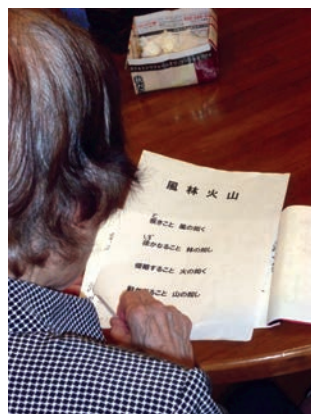 風林火山
疾きこと 風の如く
徐かなること 林の如し
侵略すること 火の如く
動かざること 山の如し